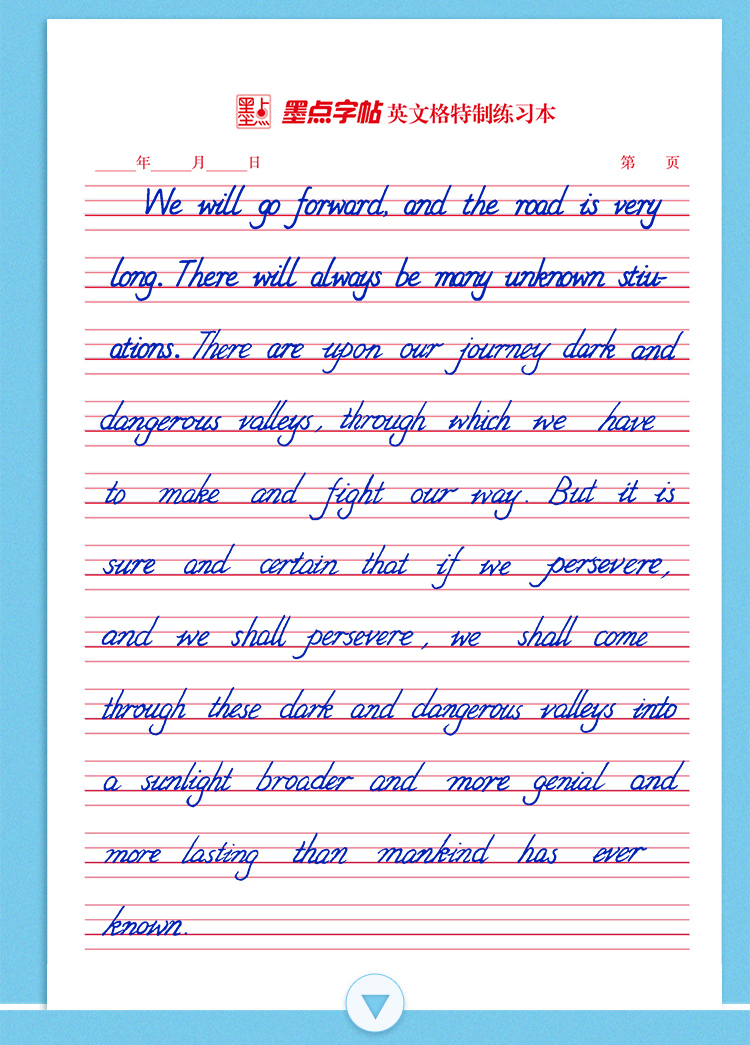 墨点 墨点字帖 英文格特制练习本
_____年_____月_____日 第 页
We will go forward, and the road is very
long. There will always be many unknown stiu-
ations. There are upon our journey dark and
dangerous valleys, through which we have
to make and fight our way. But it is
sure and certain that if we persevere,
and we shall persevere, we shall come
through these dark and dangerous valleys into
a sunlight broader and more genial and
more lasting than mankind has ever
known.